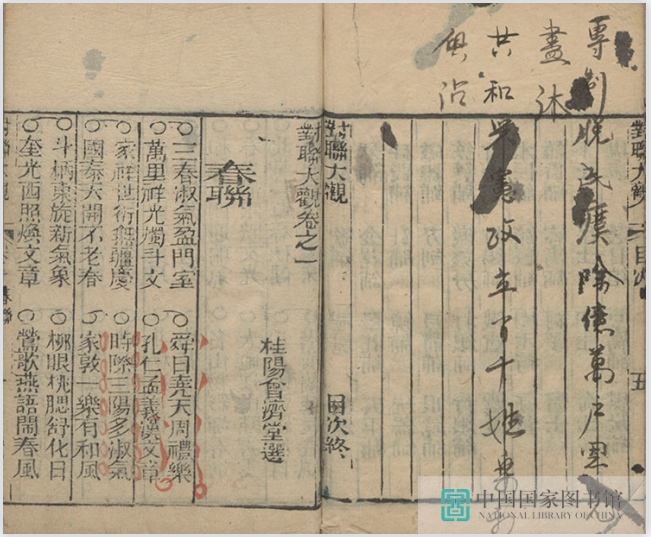 對聯大觀
目次
五
專制脫民瘼除億萬戶恩
盡沐
共和
憲政立百千姓
與沾
對聯大觀
目次終
對聯大觀卷之一
桂陽會濟堂選
春聯
三春淑氣盈門室
舜日堯天周禮樂
萬里祥光燭斗文
孔仁孟義漢文章
家祥世衍無疆慶
時際三陽多淑氣
國泰天開不老春
家敦一樂有和風
斗柄東旋新氣象
柳眼桃腮舒化日
奎光西照煥文章
鶯歌燕語鬧春風
對聯大觀
春聯
中国国家图书馆
NATIONAL LIBRARY OF CHINA